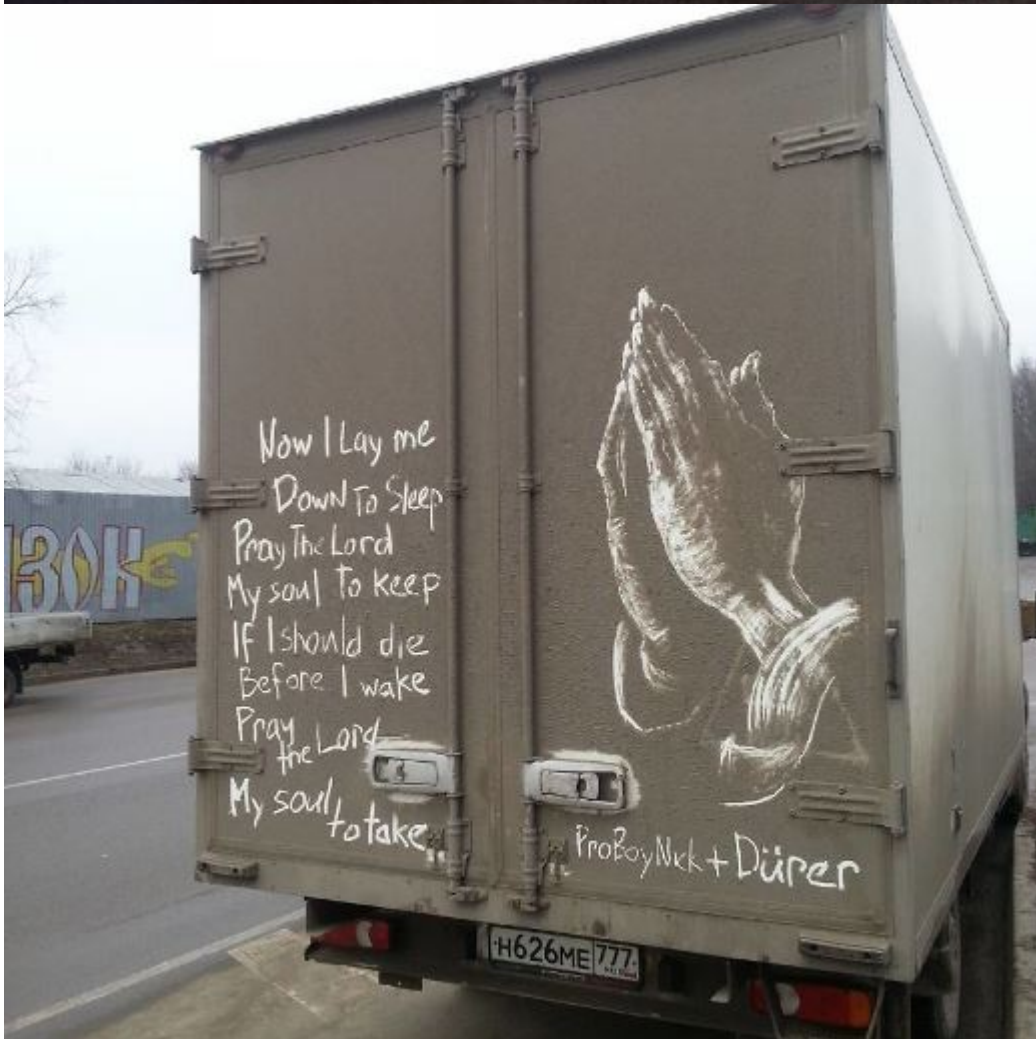 Now I Lay me
Down To Sleep
Pray The Lord
My soul To keep
If I should die
Before I wake
Pray
the Lord
My soul
to take
ProBoyNick + Dürer
Н626МЕ 777